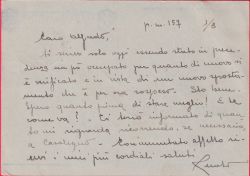 p.m. 157 1/3
Caro Alfredo,
ti scrivo solo oggi essendo stato in prece-
denza un pò occupato per quanto di nuovo si
è verificato e in vista di un nuovo sposta-
mento che è per ora sospeso. Sto bene.
Spero quanto prima di stare meglio! E tu
come va? - Ti terrò informato di quan-
to mi riguarda ricorrendo, se necessario,
a
Comunicato affetto
miei più cordiali saluti
Renato